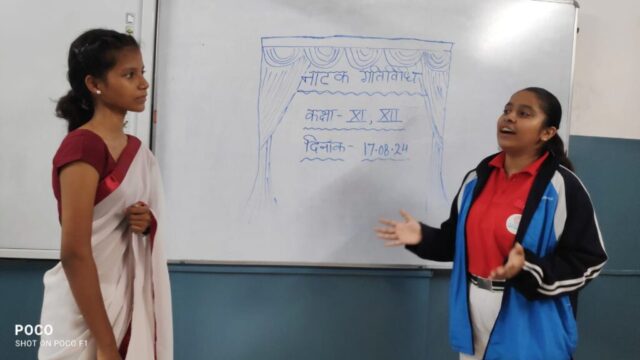 नाटक गतिविधि
कक्षा - XI, XII
दिनांक - 17-08-24
POCO
SHOT ON POCO F1